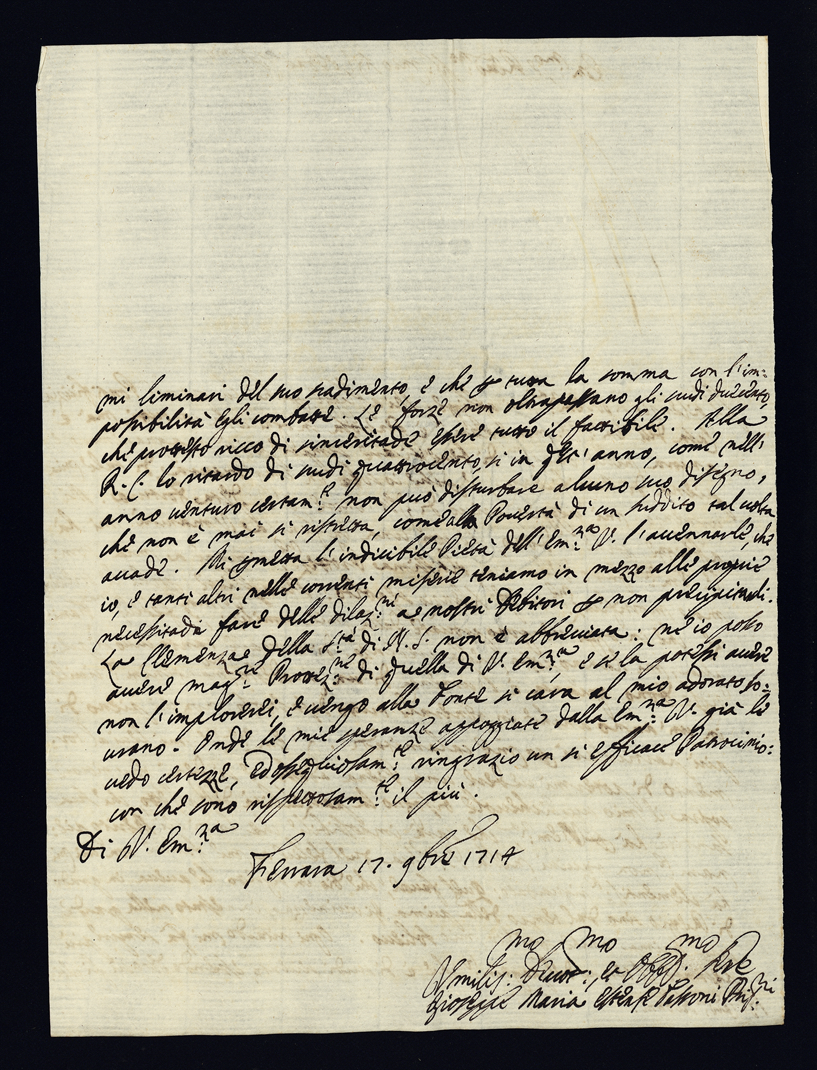 mi liminari del suo tradimento, e che p tutta la somma con l'im=
possibilità Egli combatte. Le forze non oltrapassano gli scudi duecento,
che protesto ricco di sinceritade essere tutto il fattibile. Alla
R. C. lo ritardo di scudi quattrocento, si in quest' anno, come nell'
anno venturo certam.te non può disturbare alcuno suo disegno,
che non è mai si ristretta, come alla Povertà di un suddito tal volta
accade. Mi permetta l'indicibile Pietà dell' Em.za V. l'accennarle, che
io, e tanti altri nelle correnti miserie teniamo in mezzo alle proprie
necessitadi fare delle dilaz.ni a nostri Debitori p non precipitarli.
La Clemenza della S.tà di N. S. non è abbreviata: ne io posso
avere magg.re Protez.ne di quella di V. Em.za, e se la potessi avere
non l'implorerei, e vengo alla Fonte si cara al mio adorato So=
vrano. Onde le mie speranze appoggiate dalla Em.za V. già le
vedo certezze, ed ossequiosam.te ringrazio un si efficace Patrocinio:
con che sono rispettosam.te il più.
Di V. Em.za
Ferrara 17. 9bre 1714
Umilis.mo Divot.mo, ed Obbl.mo Sre
Gioseppe Maria Estense Tassoni